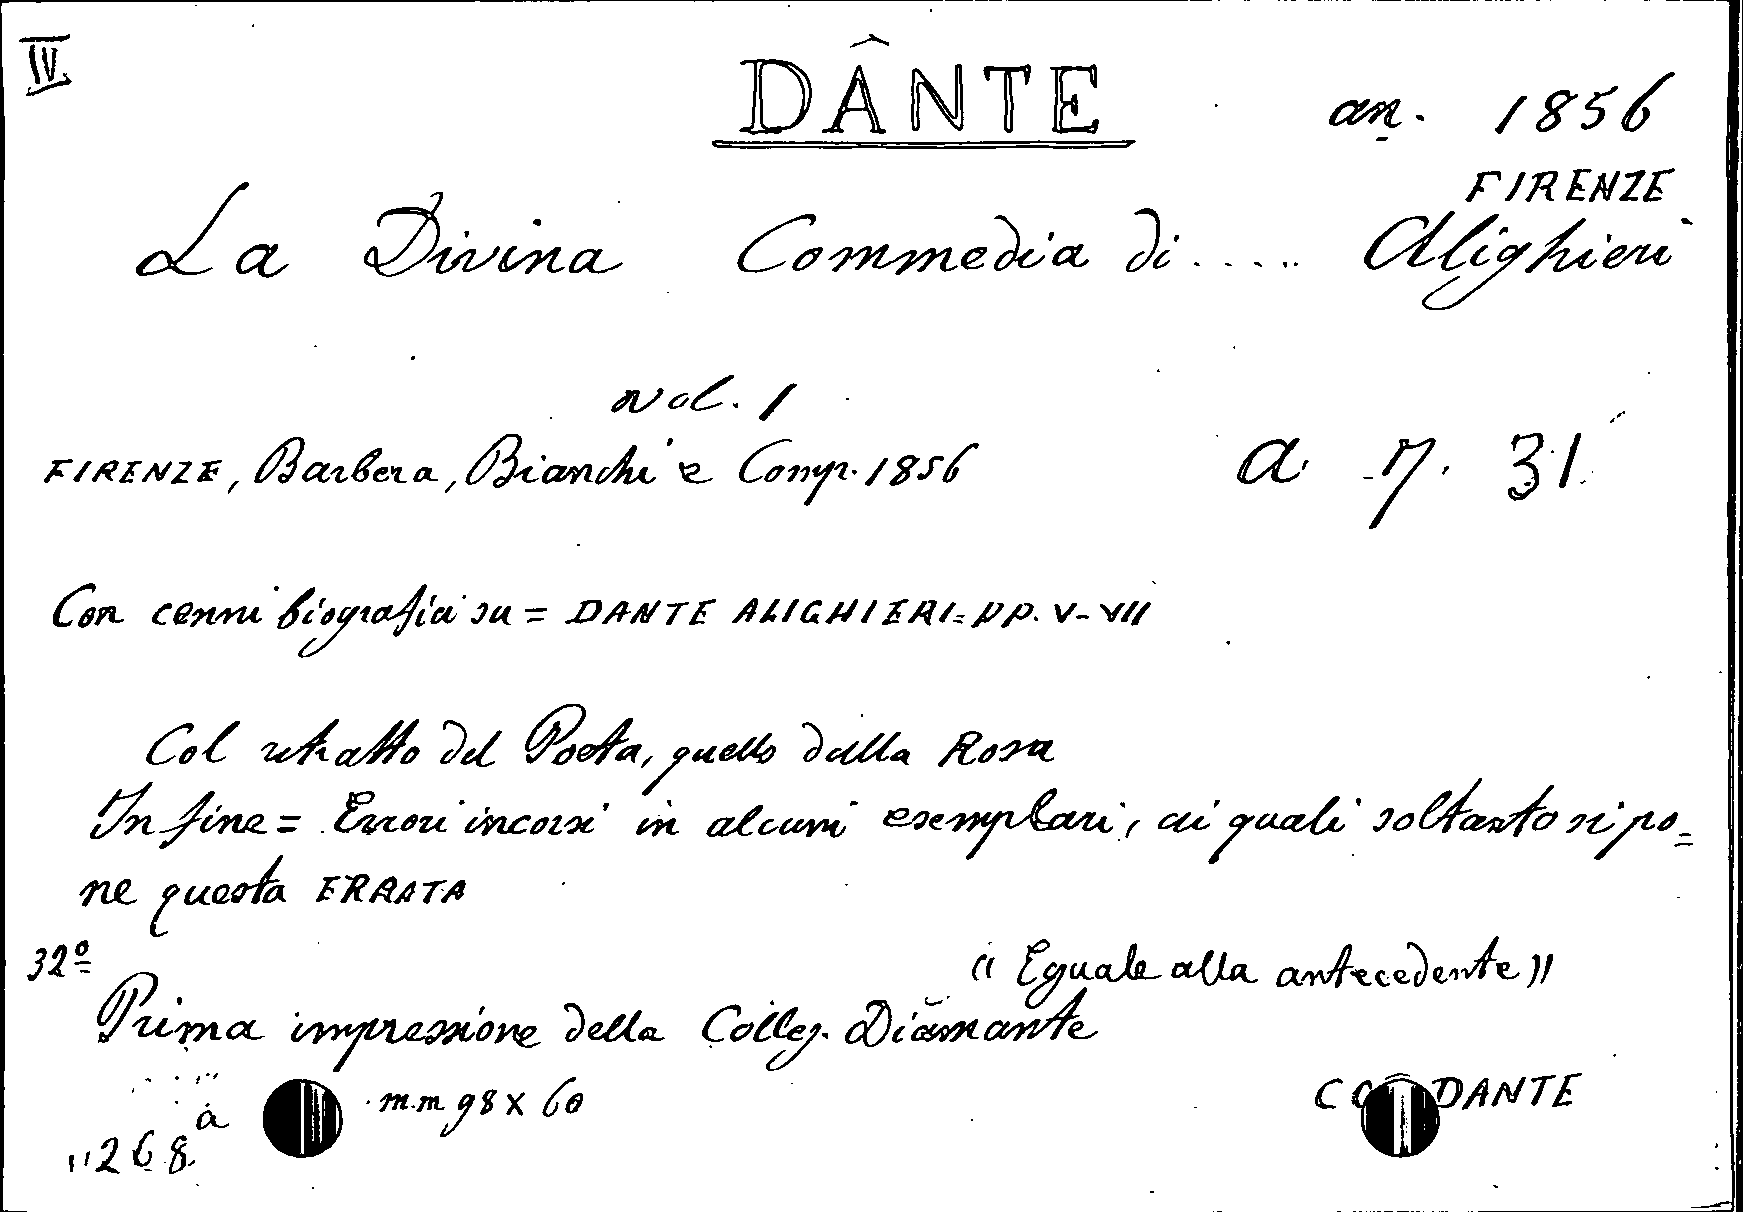 IV
DANTE
an. 1856
FIRENZE
La Divina Commedia di ..... Alighieri
vol. 1
FIRENZE, Barbera, Bianchi e Comp. 1856
a 7. 31
Con cenni biografici su = DANTE ALIGHIERI = pp. V-VII
Col ritratto del Poeta, quello dalla Rosa
In fine = Errori incorsi in alcuni esemplari, ai quali soltanto si po=
ne questa ERRATA
32º
"Eguale alla antecedente"
Prima impressione della Collez. Diamante
mm 98 x 60
DANTE
268 a